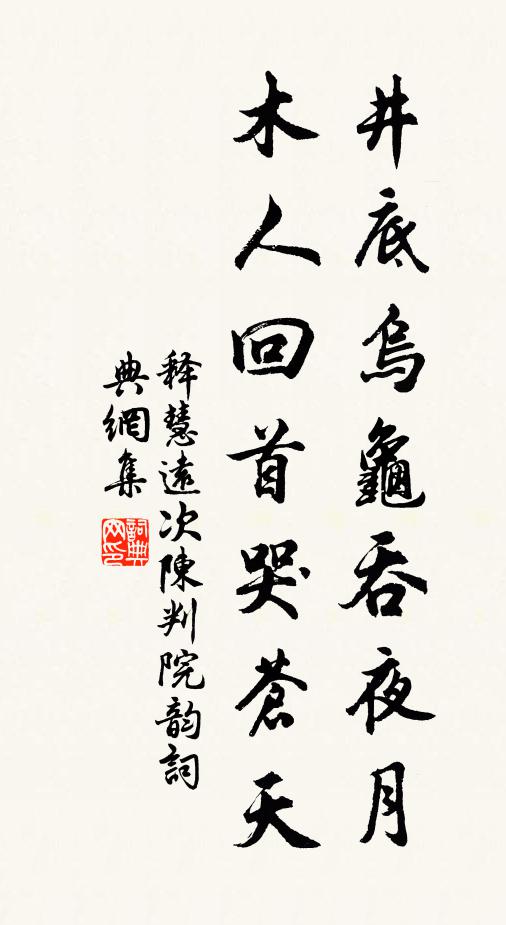 井底烏龜吞夜月
木人回首哭蒼天
释慧遠次陳判院韵詞
典網集
詞典
网印